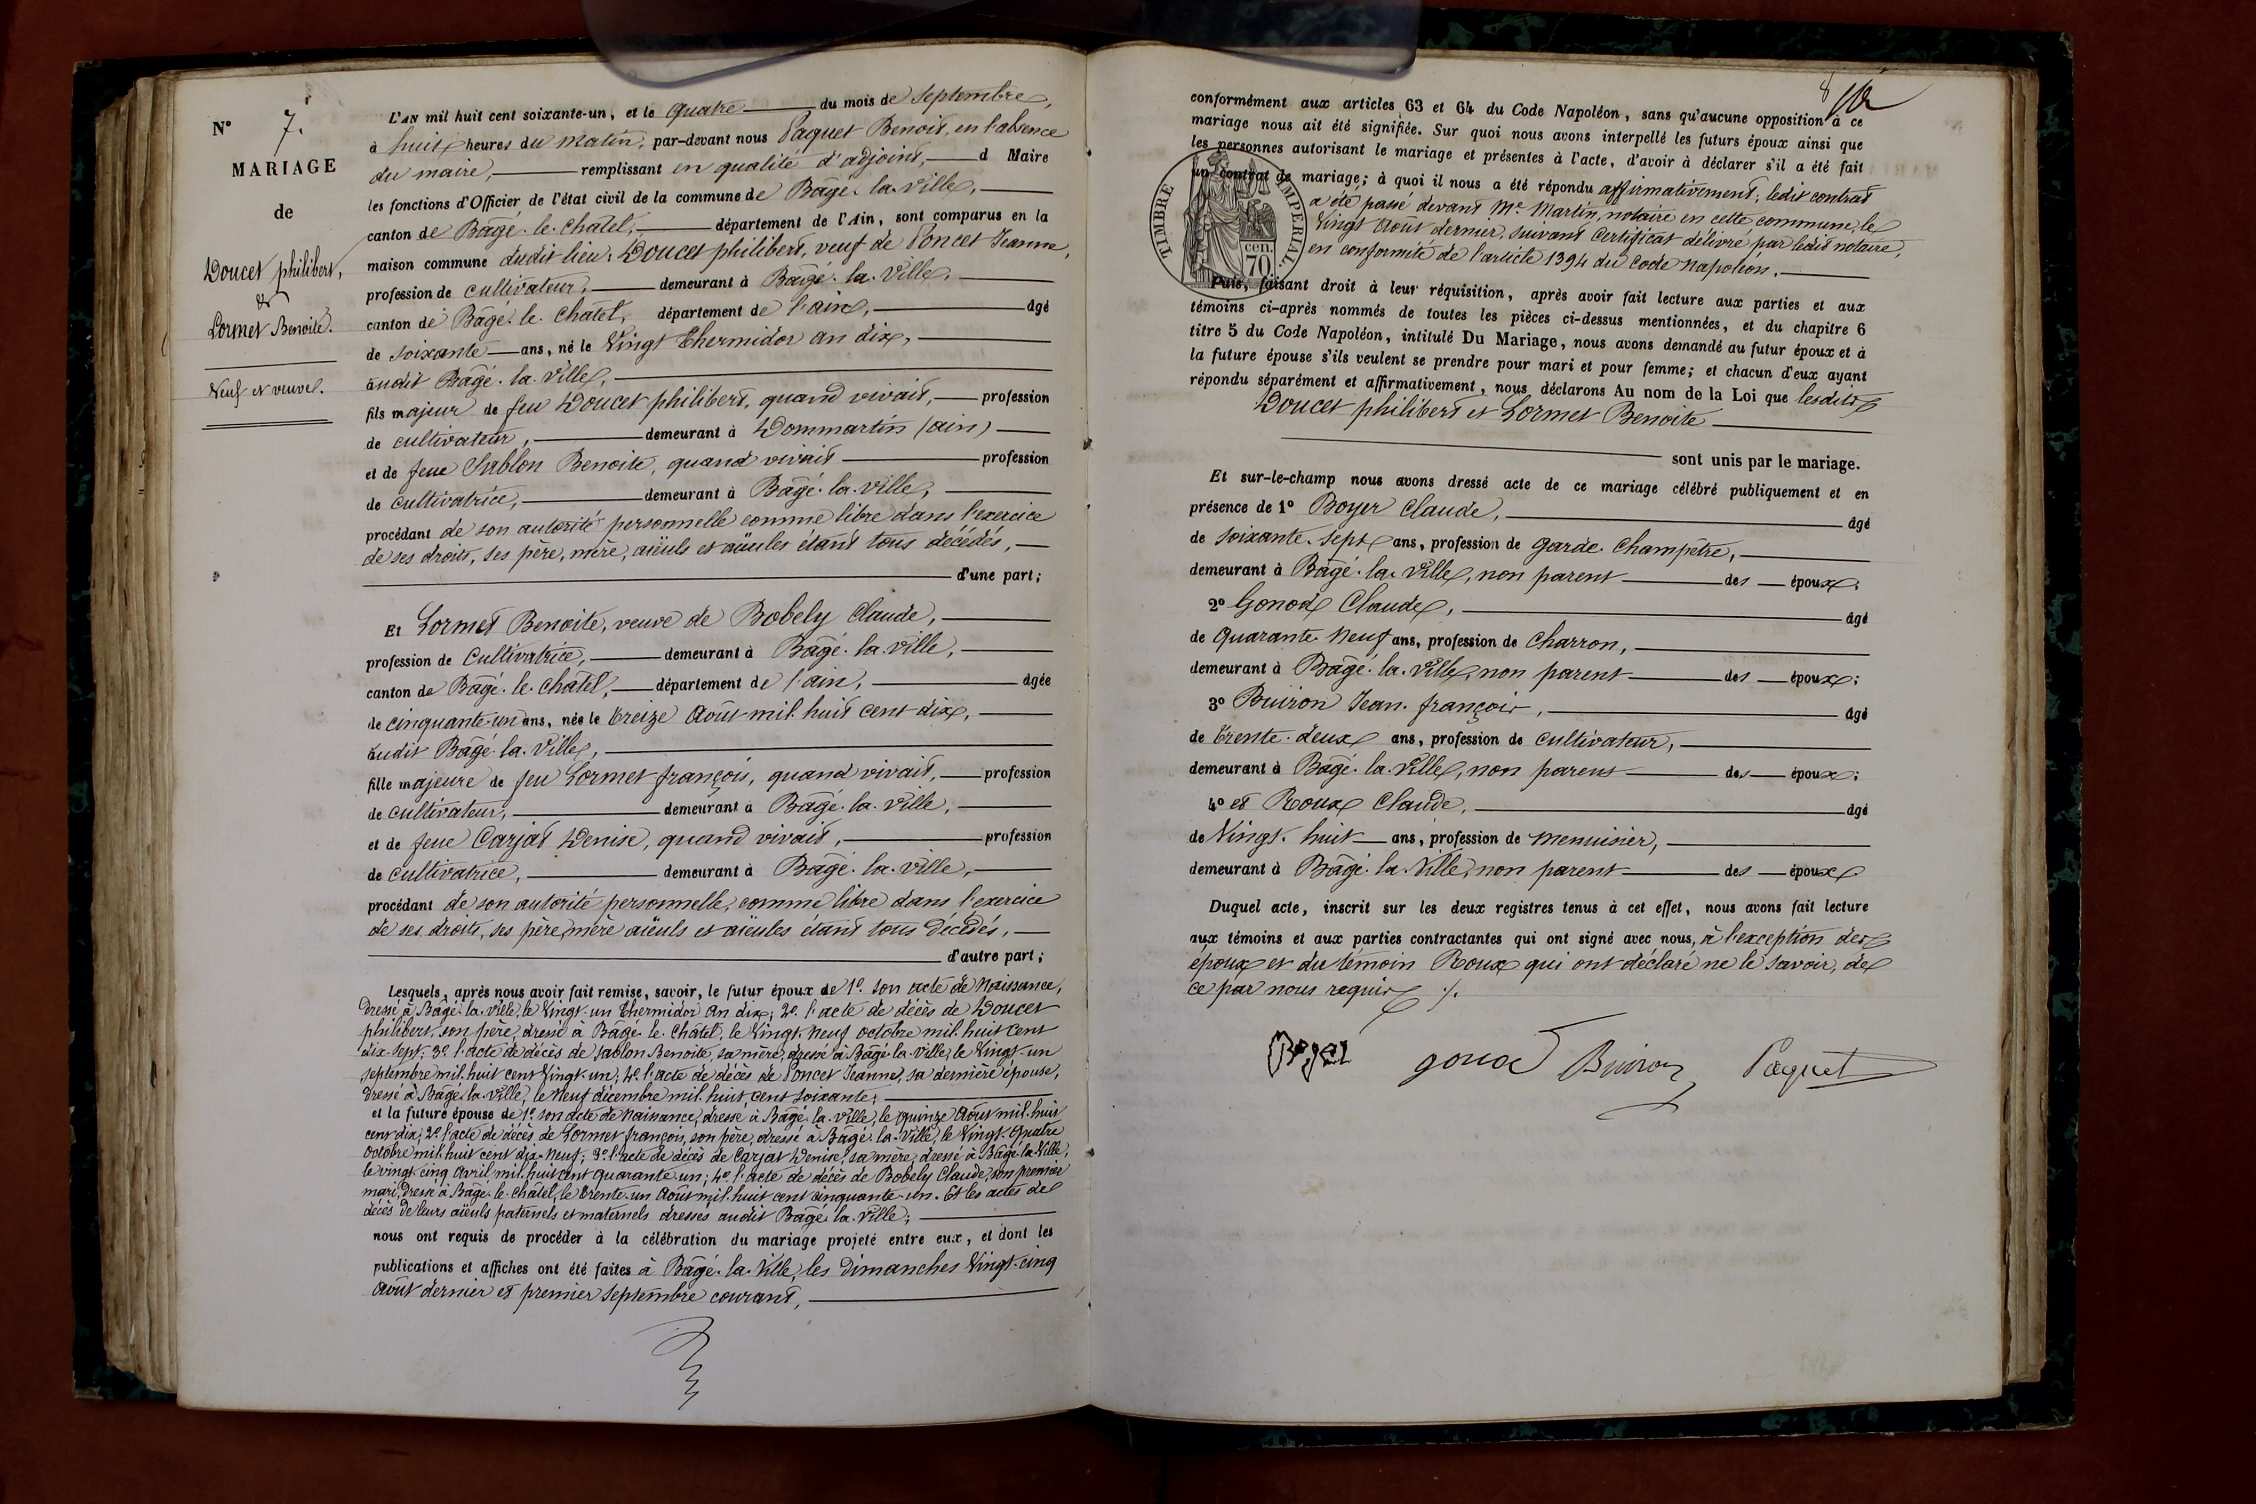 N° 7.
MARIAGE
de
Doucet philibert,
&
Lormet Benoite.
Veuf et veuve.
L'AN mil huit cent soixante-un, et le quatre du mois de Septembre,
à huit heures du matin, par-devant nous Paquet Benoit, en l'absence
du maire, remplissant en qualité d'adjoint, d Maire
les fonctions d'Officier de l'état civil de la commune de Bâgé-la-ville,
canton de Bâgé-le-Châtel, département de l'Ain, sont comparus en la
maison commune dudit lieu, Doucet philibert, veuf de Poncet Jeanne,
profession de cultivateur, demeurant à Bâgé-la-Ville,
canton de Bâgé-le-Châtel, département de l'ain, âgé
de soixante ans, né le Vingt Thermidor an dix,
audit Bâgé-la-Ville,
fils majeur de feu Doucet philibert, quand vivait, profession
de cultivateur, demeurant à Dommartin (ain)
et de feue Sablon Benoite, quand vivait profession
de cultivatrice, demeurant à Bâgé-la-ville,
procédant de son autorité personnelle comme libre dans l'exercice
de ses droits, ses père, mère, aïeuls et aïeules étant tous décédés,
d'une part;
Et Lormet Benoite, veuve de Bobely Claude,
profession de Cultivatrice, demeurant à Bâgé-la-ville,
canton de Bâgé-le-Châtel, département de l'ain, âgée
de cinquante-un ans, née le treize Août mil-huit cent dix,
audit Bâgé-la-Ville,
fille majeure de feu Lormet françois, quand vivait, profession
de cultivateur, demeurant à Bâgé-la-ville,
et de feue Carjat Denise, quand vivait, profession
de cultivatrice, demeurant à Bâgé-la-ville,
procédant de son autorité personnelle, comme libre dans l'exercice
de ses droits, ses père, mère aïeuls et aïeules étant tous décédés,
d'autre part;
Lesquels, après nous avoir fait remise, savoir, le futur époux de 1° son acte de Naissance,
dressé à Bâgé-la-Ville, le Vingt-un Thermidor an dix; 2° l'acte de décès de Doucet
philibert, son père, dressé à Bâgé-le-Châtel, le Vingt-neuf octobre mil-huit cent
dix-sept; 3° l'acte de décès de Sablon Benoite, sa mère, dressé à Bâgé-la-ville, le Vingt-un
septembre mil-huit cent Vingt-un; 4° l'acte de décès de Poncet Jeanne, sa dernière épouse,
dressé à Bâgé-la-ville, le Neuf décembre mil-huit cent soixante;
et la future épouse de 1° son acte de Naissance, dressé à Bâgé-la-Ville, le quinze Août mil-huit
cent dix; 2° l'acte de décès de Lormet françois, son père, dressé à Bâgé-la-Ville, le Vingt-Quatre
Octobre mil-huit cent dix-Neuf; 3° l'acte de décès de Carjat Denise, sa mère, dressé à Bâgé-la-Ville,
le vingt-cinq Avril mil-huit cent quarante-un; 4° l'acte de décès de Bobely Claude, son premier
mari, dressé à Bâgé-le-Châtel, le trente-un Août mil-huit cent cinquante-un. Et les actes de
décès de leurs aïeuls paternels et maternels dressés audit Bâgé-la-Ville;
nous ont requis de procéder à la célébration du mariage projeté entre eux, et dont les
publications et affiches ont été faites à Bâgé-la-Ville, les Dimanches Vingt-cinq
Août dernier et premier Septembre courant,
8
conformément aux articles 63 et 64 du Code Napoléon, sans qu'aucune opposition à ce
mariage nous ait été signifiée. Sur quoi nous avons interpellé les futurs époux ainsi que
les personnes autorisant le mariage et présentes à l'acte, d'avoir à déclarer s'il a été fait
un contrat de mariage; à quoi il nous a été répondu affirmativement; ledit contrat
a été passé devant Me Martin, notaire en cette commune, le
Vingt Août dernier, suivant Certificat délivré par ledit notaire,
en conformité de l'article 1394 du Code Napoléon.
TIMBRE IMPERIAL
cen.
70
Puis, faisant droit à leur réquisition, après avoir fait lecture aux parties et aux
témoins ci-après nommés de toutes les pièces ci-dessus mentionnées, et du chapitre 6
titre 5 du Code Napoléon, intitulé Du Mariage, nous avons demandé au futur époux et à
la future épouse s'ils veulent se prendre pour mari et pour femme; et chacun d'eux ayant
répondu séparément et affirmativement, nous déclarons Au nom de la Loi que lesdits
Doucet philibert et Lormet Benoite
sont unis par le mariage.
Et sur-le-champ nous avons dressé acte de ce mariage célébré publiquement et en
présence de 1° Boyer Claude, âgé
de soixante-sept ans, profession de garde-champêtre,
demeurant à Bâgé-la-Ville, non parent des époux;
2° Gonod Claude, âgé
de Quarante-Neuf ans, profession de charron,
demeurant à Bâgé-la-Ville, non parent des époux;
3° Buiron Jean-françois, âgé
de trente-deux ans, profession de cultivateur,
demeurant à Bâgé-la-Ville, non parent des époux;
4° et Roux Claude, âgé
de Vingt-huit ans, profession de menuisier,
demeurant à Bâgé-la-Ville, non parent des époux
Duquel acte, inscrit sur les deux registres tenus à cet effet, nous avons fait lecture
aux témoins et aux parties contractantes qui ont signé avec nous, à l'exception des
époux et du témoin Roux qui ont déclaré ne le savoir, de
ce par nous requis ./.
Boyer gonod Buiron Paquet